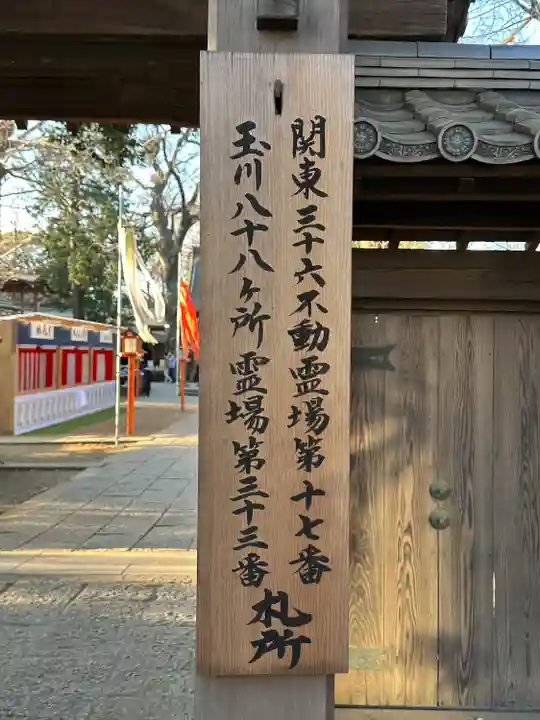 関東三十六不動霊場第十七番
玉川八十八ヶ所霊場第三十三番
札所